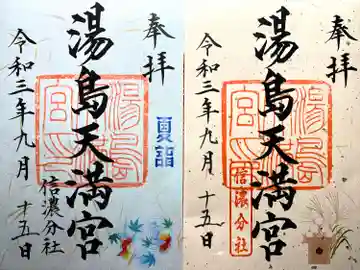 奉拝
夏詣
湯島天満宮
信濃分社
令和三年九月十五日
奉拝
湯島天満宮
信濃分社
令和三年九月十五日